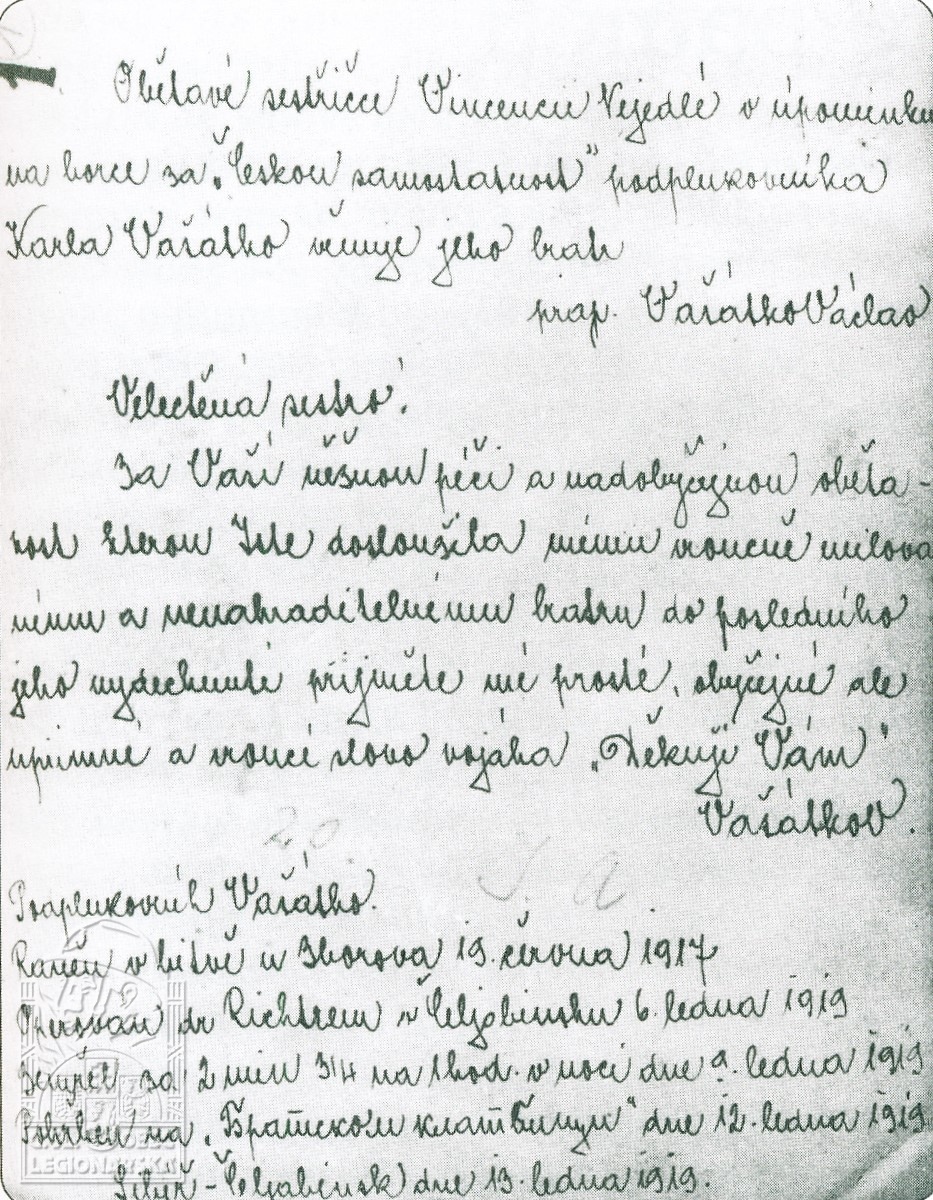 1.
Obětavé sestřičce Vincencii Nejedlé v upomínku
na borce za „Českou samostatnost" podplukovníka
Karla Vašátko věnuje jeho bratr
prap. Vašátko Václav
Velectěná sestro!
Za Vaší něžnou péči a nadobyčejnou oběta-
vost kterou Jste dosloužila mému vroucně milova
nému a nenahraditelnému bratru do posledního
jeho vydechnutí přijměte mé prosté, obyčejné ale
upřímné a vroucí slovo vojáka „Děkuji Vám"
VašátkoV.
20
Podplukovník Vašátko.
Raněn v bitvě u Zborova 19. června 1917
Operován dr Richtrem v Čeljabinsku 6. ledna 1919
Zemřel za 2 min 3/4 na 1 hod. v noci dne 9. ledna 1919
Pohřben na „Братском кладбищи" dne 12. ledna 1919.
Sibiř - Čeljabinsk dne 13. ledna 1919.
LEGIONÁŘSKÁ